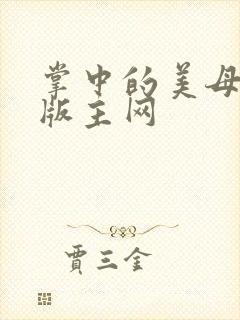 掌中的美母
版主网
贾三金